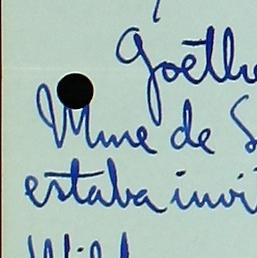 Goethe
Mme de S
estaba invi